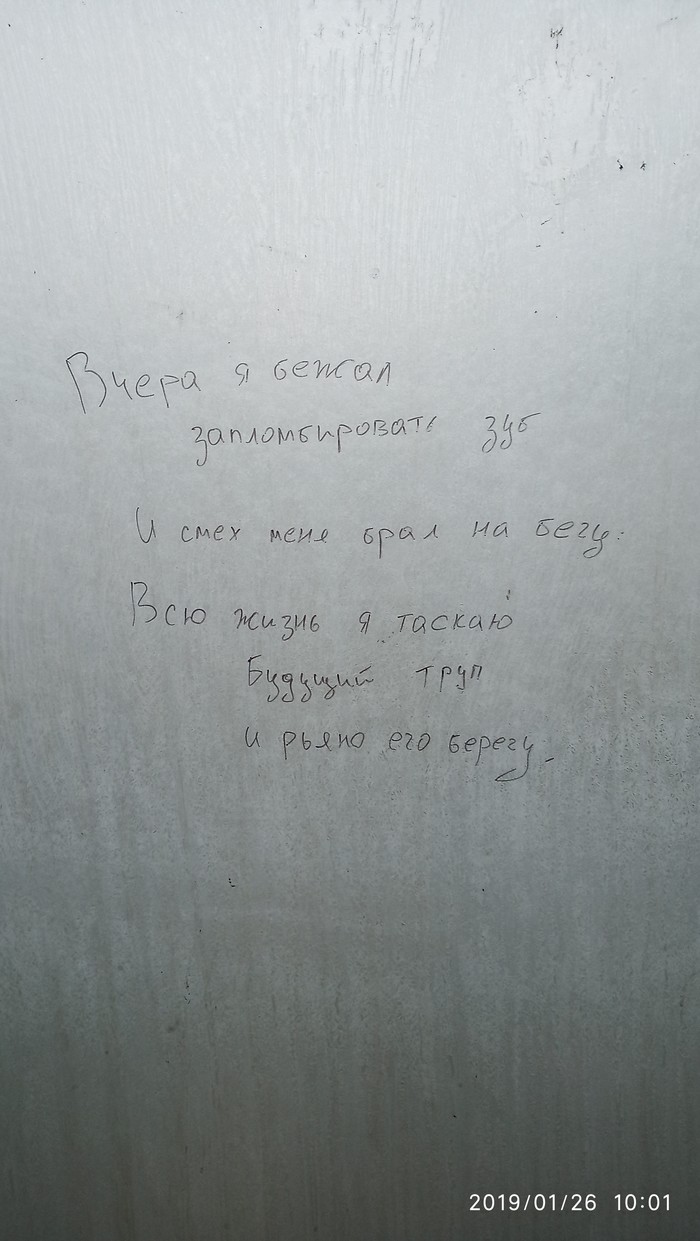 Вчера я бежал
запломбировать зуб
И смех меня брал на бегу:
Всю жизнь я таскаю
Будущий труп
и рьяно его берегу.
2019/01/26 10:01